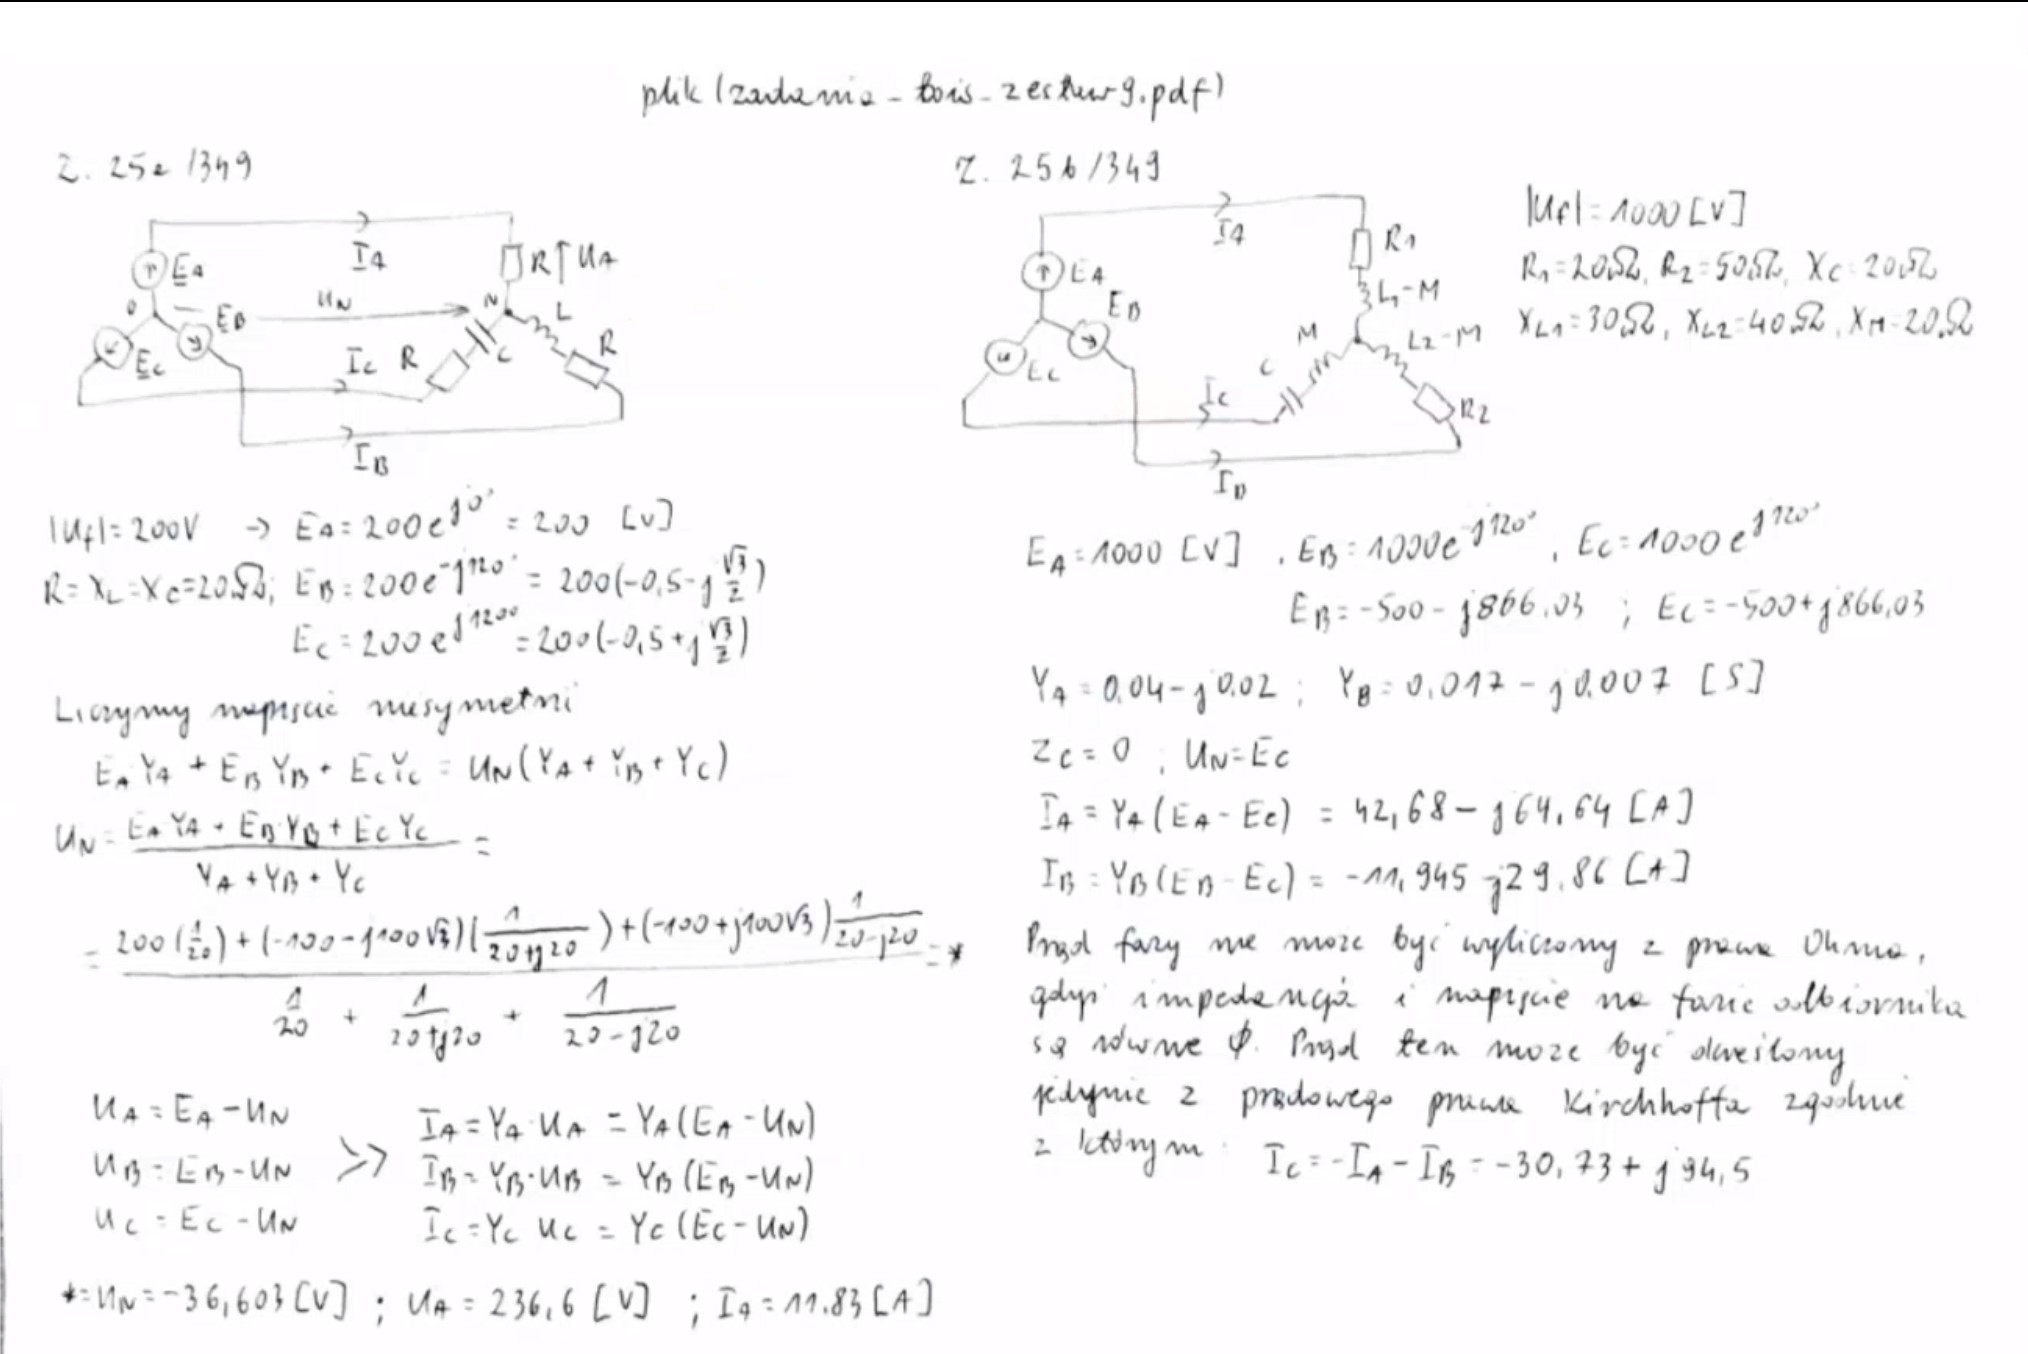 plik (zadania-tois-zestaw9.pdf)
Z. 25a /349
I_A
E_A
R ↑ U_A
0
E_B
U_N
N
L
E_C
I_C
R
C
R
I_B
|U_f| = 200V → E_A = 200e^{j0°} = 200 [V]
R = X_L = X_C = 20Ω; E_B = 200e^{-j120°} = 200(-0,5-j√3/2)
E_C = 200e^{j120°} = 200(-0,5+j√3/2)
Liczymy napięcie niesymetrii
E_A Y_A + E_B Y_B + E_C Y_C = U_N (Y_A + Y_B + Y_C)
U_N = (E_A Y_A + E_B Y_B + E_C Y_C) / (Y_A + Y_B + Y_C) =
= (200(1/20) + (-100-j100√3)(1/(20+j20)) + (-100+j100√3) 1/(20-j20)) / (1/20 + 1/(20+j20) + 1/(20-j20)) = *
U_A = E_A - U_N
U_B = E_B - U_N
U_C = E_C - U_N
>>
I_A = Y_A · U_A = Y_A (E_A - U_N)
I_B = Y_B · U_B = Y_B (E_B - U_N)
I_C = Y_C U_C = Y_C (E_C - U_N)
* = U_N = -36,603 [V] ; U_A = 236,6 [V] ; I_A = 11.83 [A]
Z. 25b /349
I_A
R_1
E_A
L_1-M
E_B
M
L_2-M
E_C
C
I_C
R_2
I_B
|U_f| = 1000 [V]
R_1 = 20Ω, R_2 = 50Ω, X_C = 20Ω
X_L1 = 30Ω, X_L2 = 40Ω, X_M = 20Ω
E_A = 1000 [V] , E_B = 1000e^{-j120°} , E_C = 1000e^{j120°}
E_B = -500 - j866,03 ; E_C = -500 + j866,03
Y_A = 0.04 - j0.02 ; Y_B = 0.017 - j0.007 [S]
Z_C = 0 ; U_N = E_C
I_A = Y_A (E_A - E_C) = 42,68 - j64,64 [A]
I_B = Y_B (E_B - E_C) = -11,945 - j29,86 [A]
Prąd fazy nie może być wyliczony z prawa Ohma,
gdyż impedancja i napięcie na fazie odbiornika
są równe ϕ. Prąd ten może być określony
jedynie z prądowego prawa Kirchhoffa zgodnie
z którym: I_C = -I_A - I_B = -30,73 + j94,5